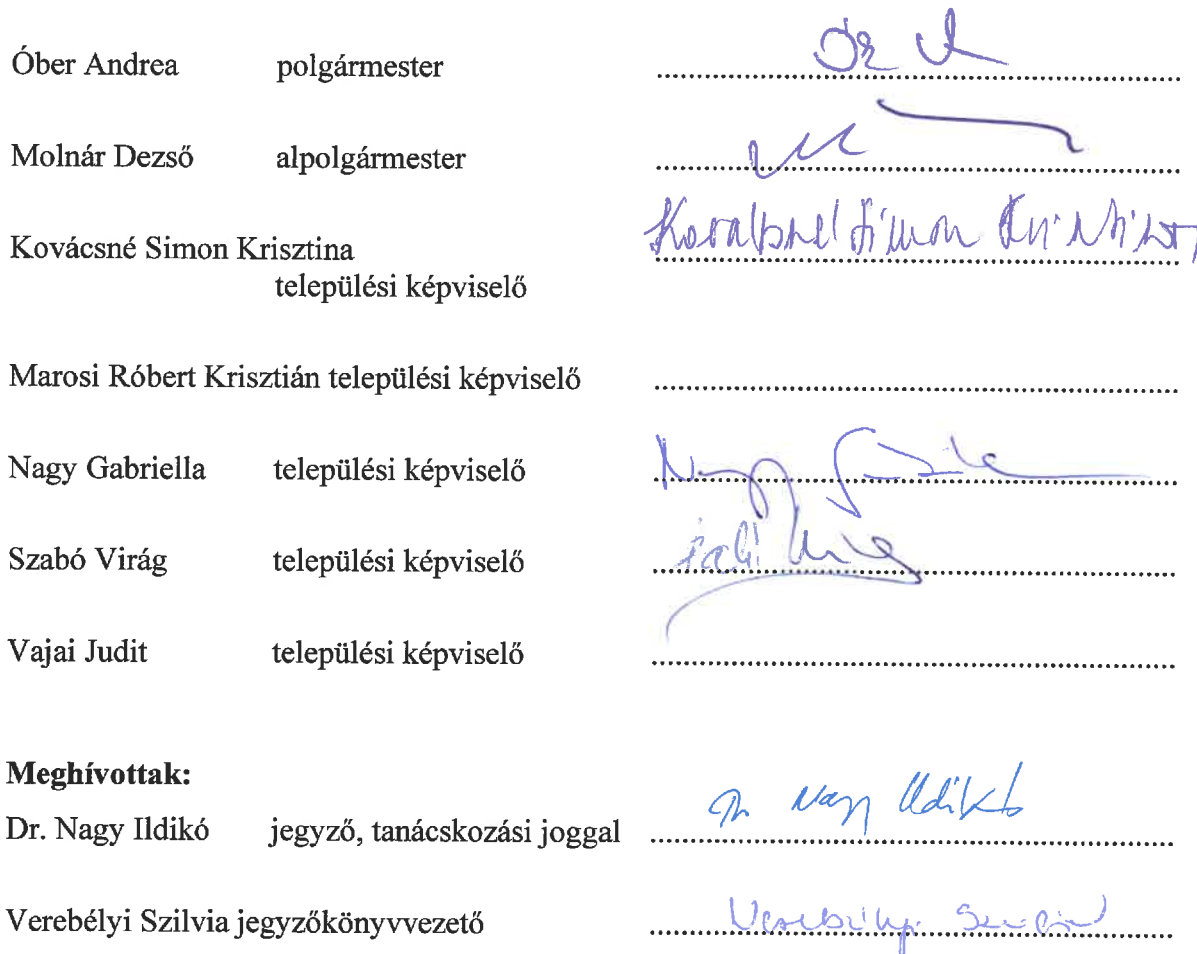 Óber Andrea polgármester ........................
Molnár Dezső alpolgármester ........................
Kovácsné Simon Krisztina ........................ Kovácsné Simon Krisztina
települési képviselő
Marosi Róbert Krisztián települési képviselő ........................
Nagy Gabriella települési képviselő ........................ Nagy
Szabó Virág települési képviselő ........................
Vajai Judit települési képviselő ........................
Meghívottak:
Dr. Nagy Ildikó jegyző, tanácskozási joggal ........................ Dr Nagy Ildikó
Verebélyi Szilvia jegyzőkönyvvezető ........................ Verebélyi Szilvia